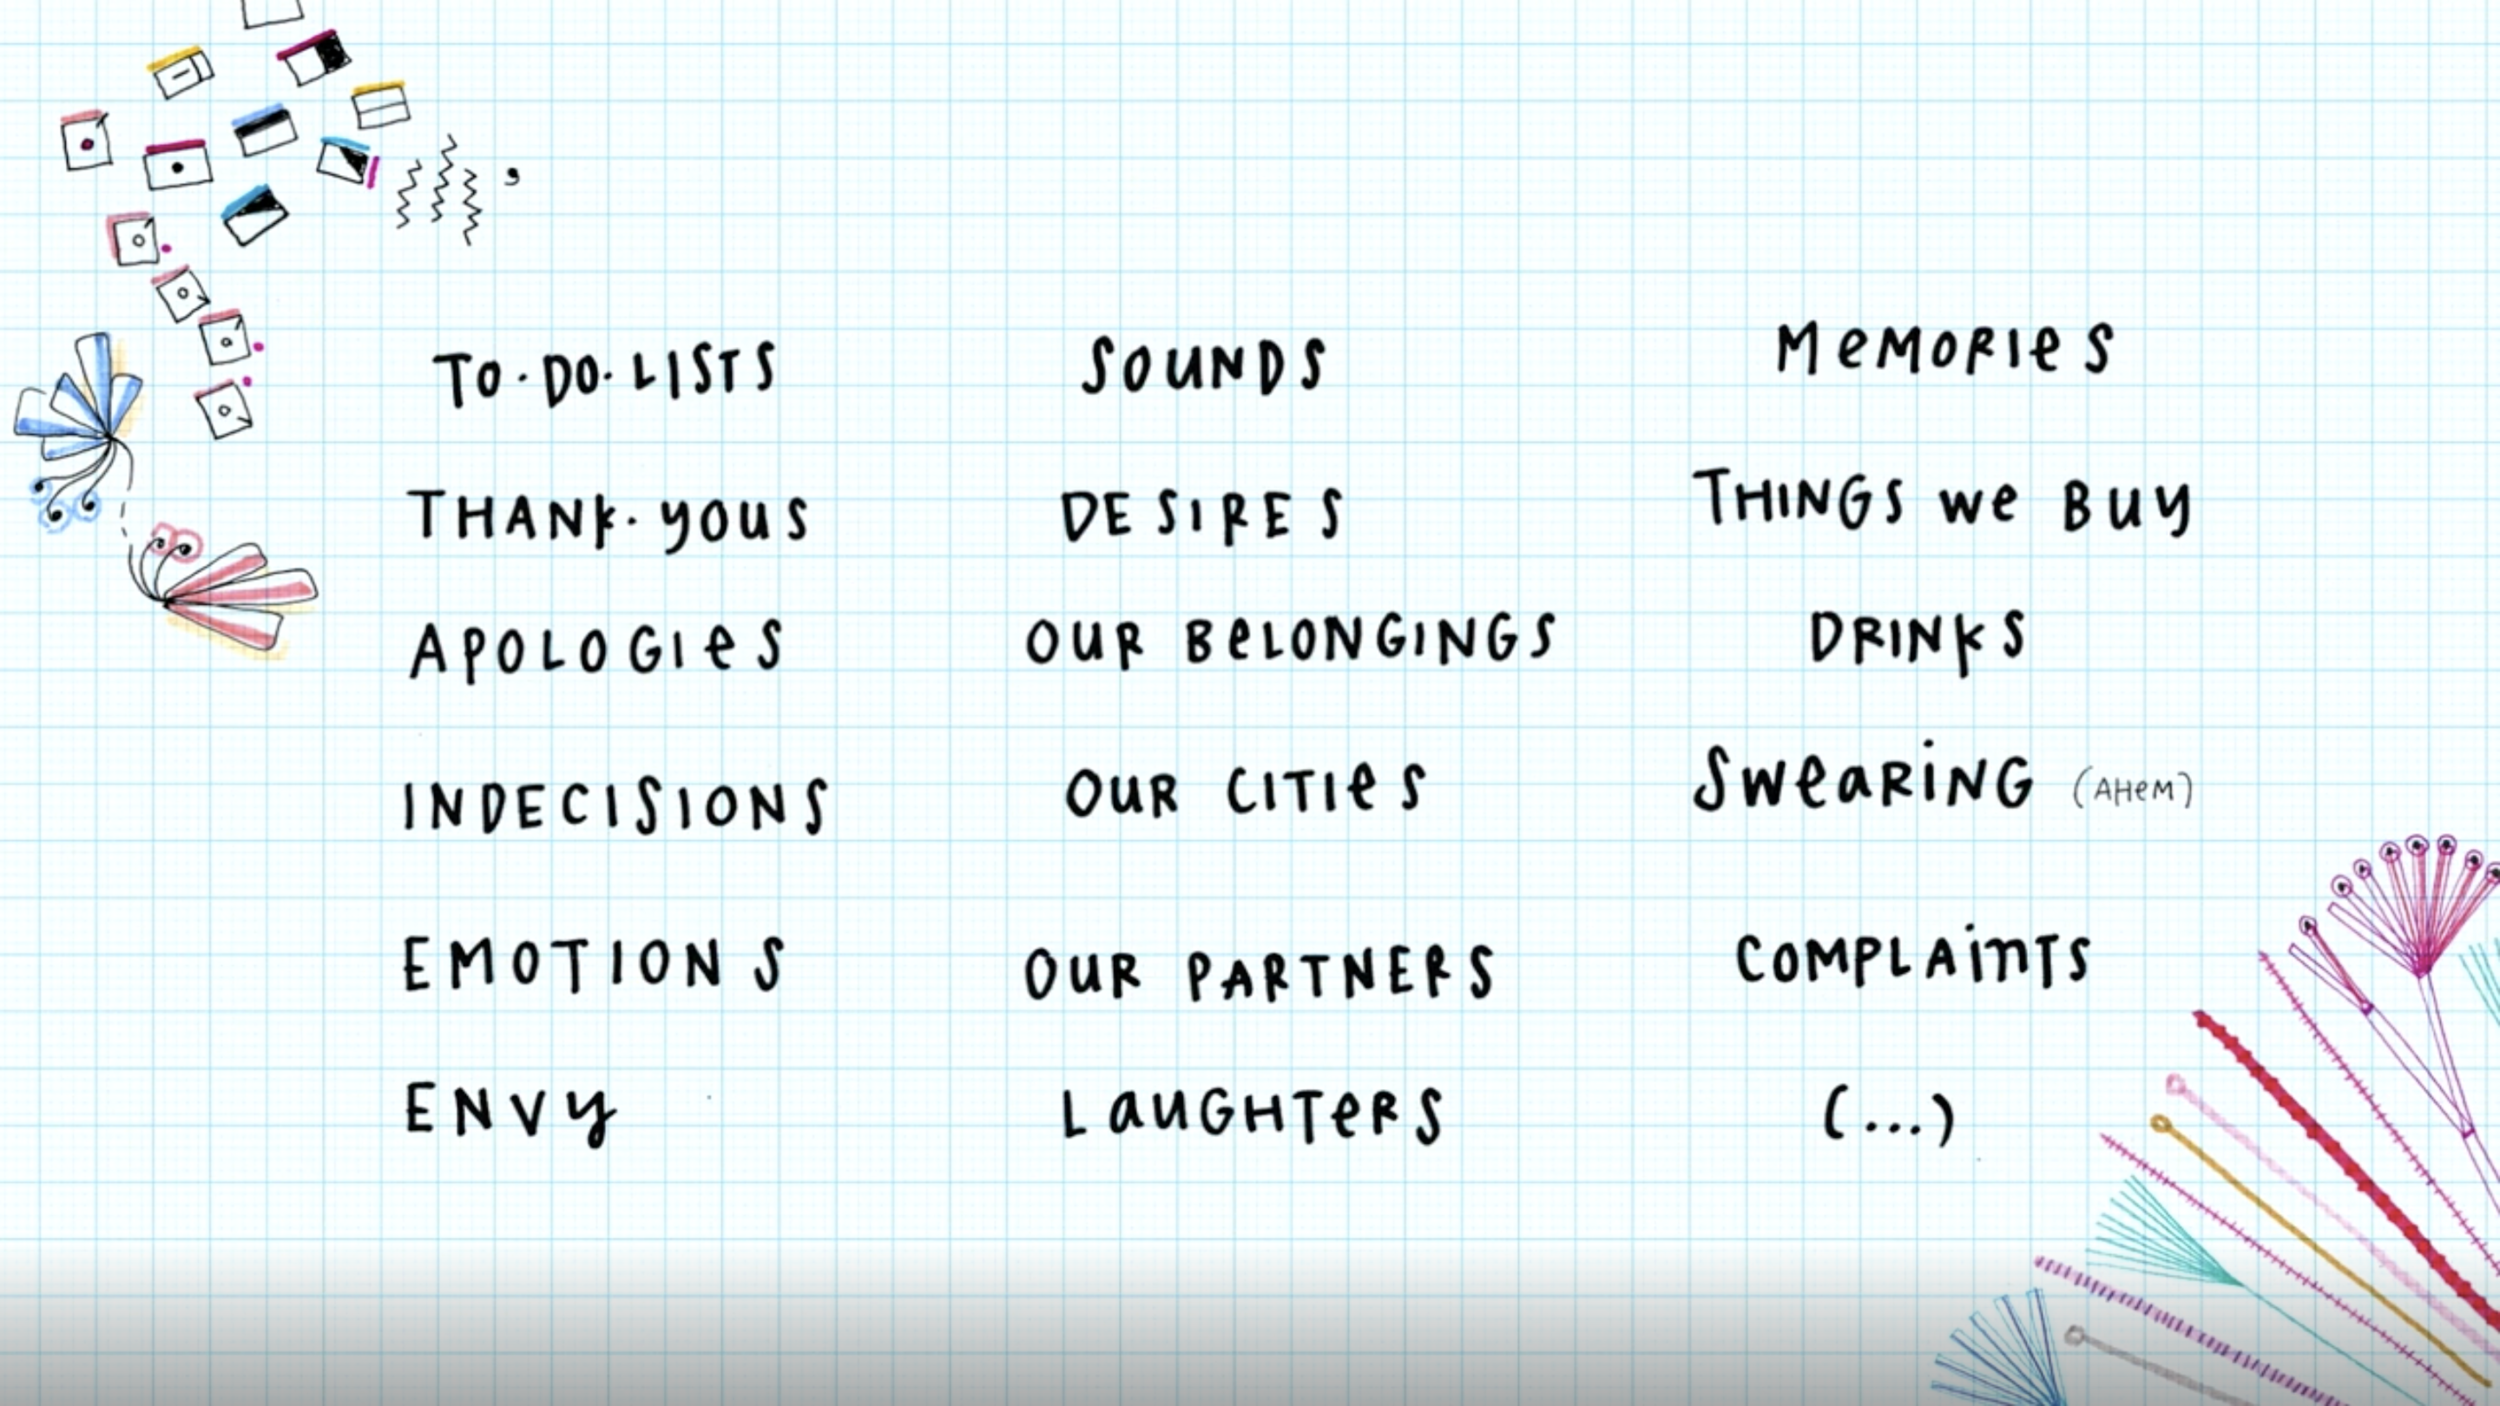 TO·DO·LISTS
THANK·YOUS
APOLOGIES
INDECISIONS
EMOTIONS
ENVY
SOUNDS
DESIRES
OUR BELONGINGS
OUR CITIES
OUR PARTNERS
LAUGHTERS
MEMORIES
THINGS WE BUY
DRINKS
SWEARING (AHEM)
COMPLAINTS
(...)